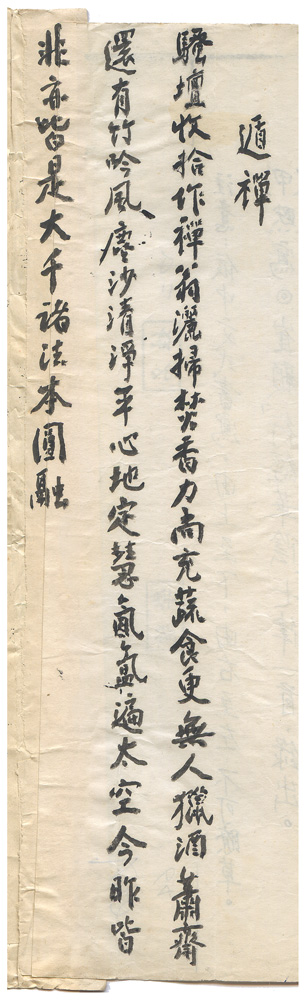 遁禪
騷壇收拾作禪翁灑掃焚香力尚充蔬食更無人獵酒蕭齋
還有竹吟風塵沙清淨平心地定慧氤氳遍太空今昨皆
非亦皆是大千諸法本圓融